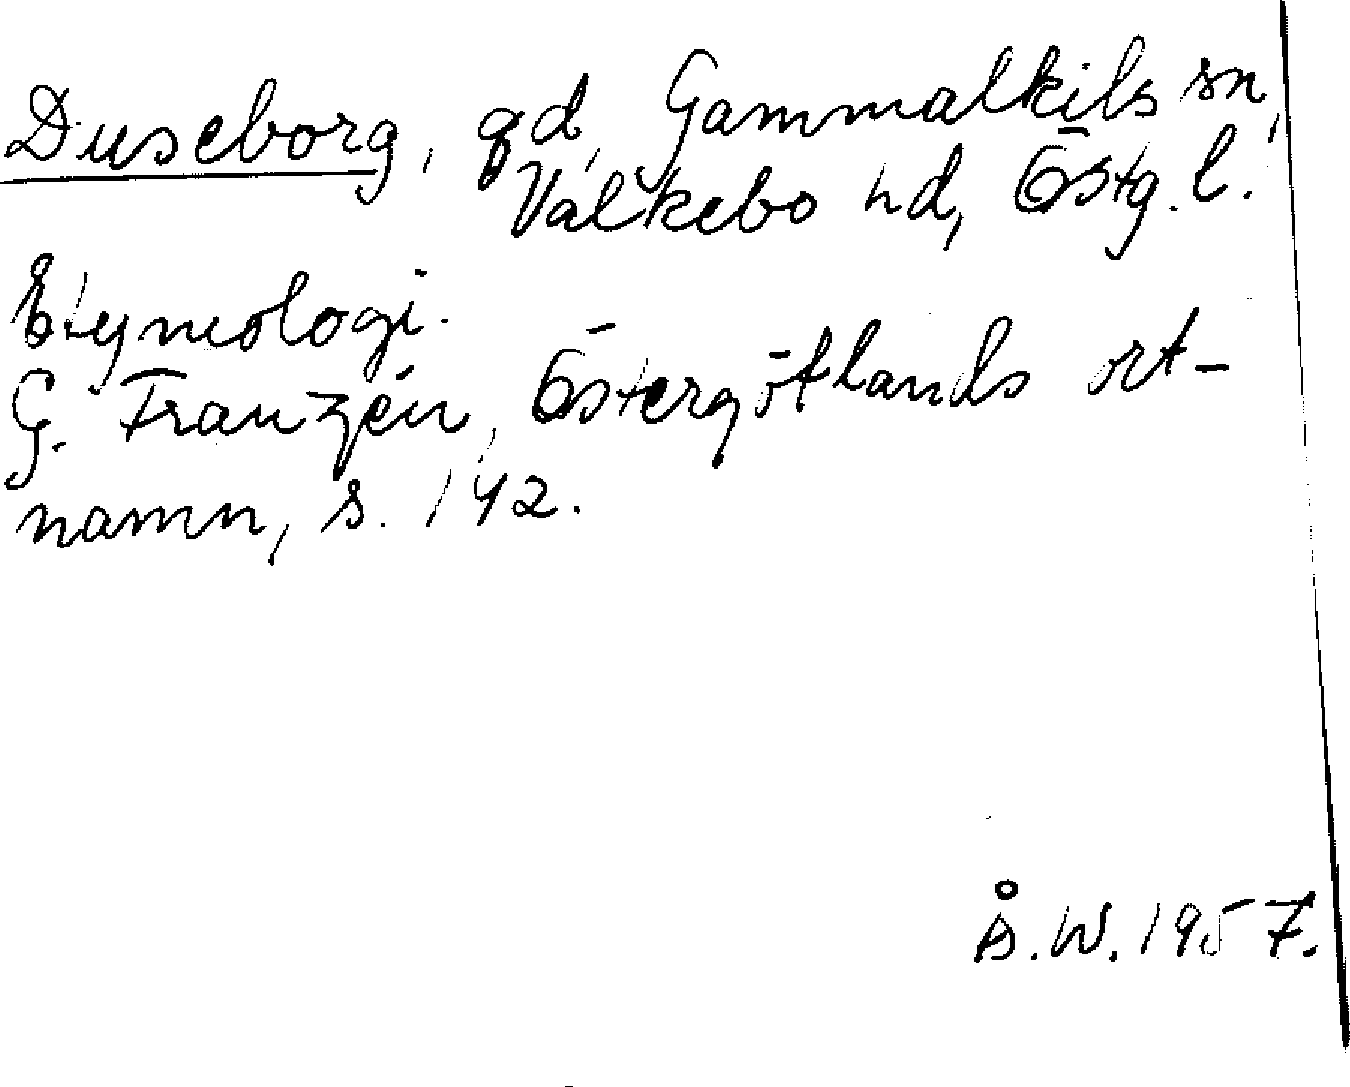 Duseborg, gd, Gammalkils sn,
Valkebo hd, Östg. l.
Etymologi.
G. Franzén, Östergötlands ort-
namn, s. 142.
Å.W. 1957.